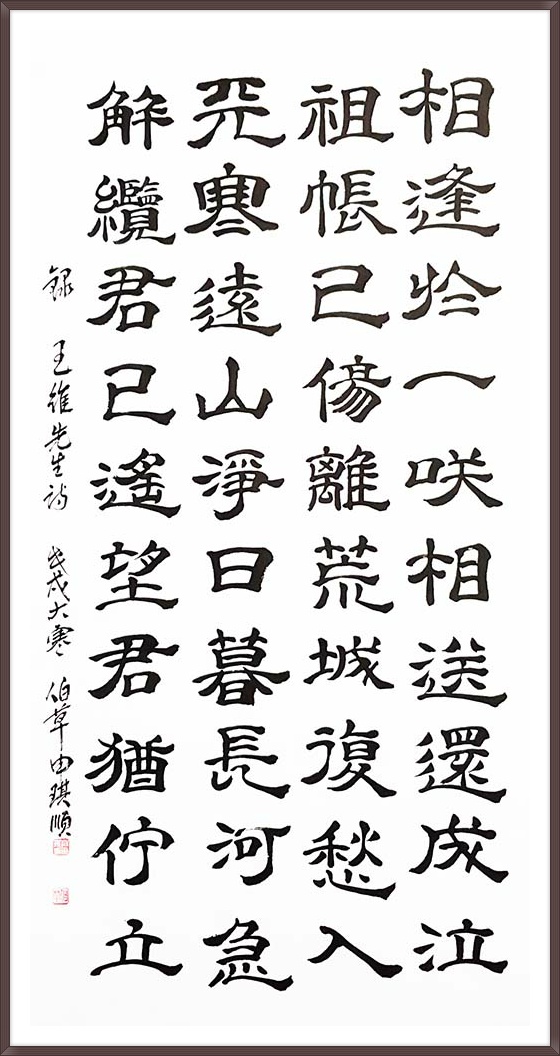 相逢於一咲相送還成泣
祖帳已傷離荒城復愁入
天寒遠山淨日暮長河急
解纜君已遙望君猶佇立
録 王維先生詩 戊戌大寒 伯草由琪順